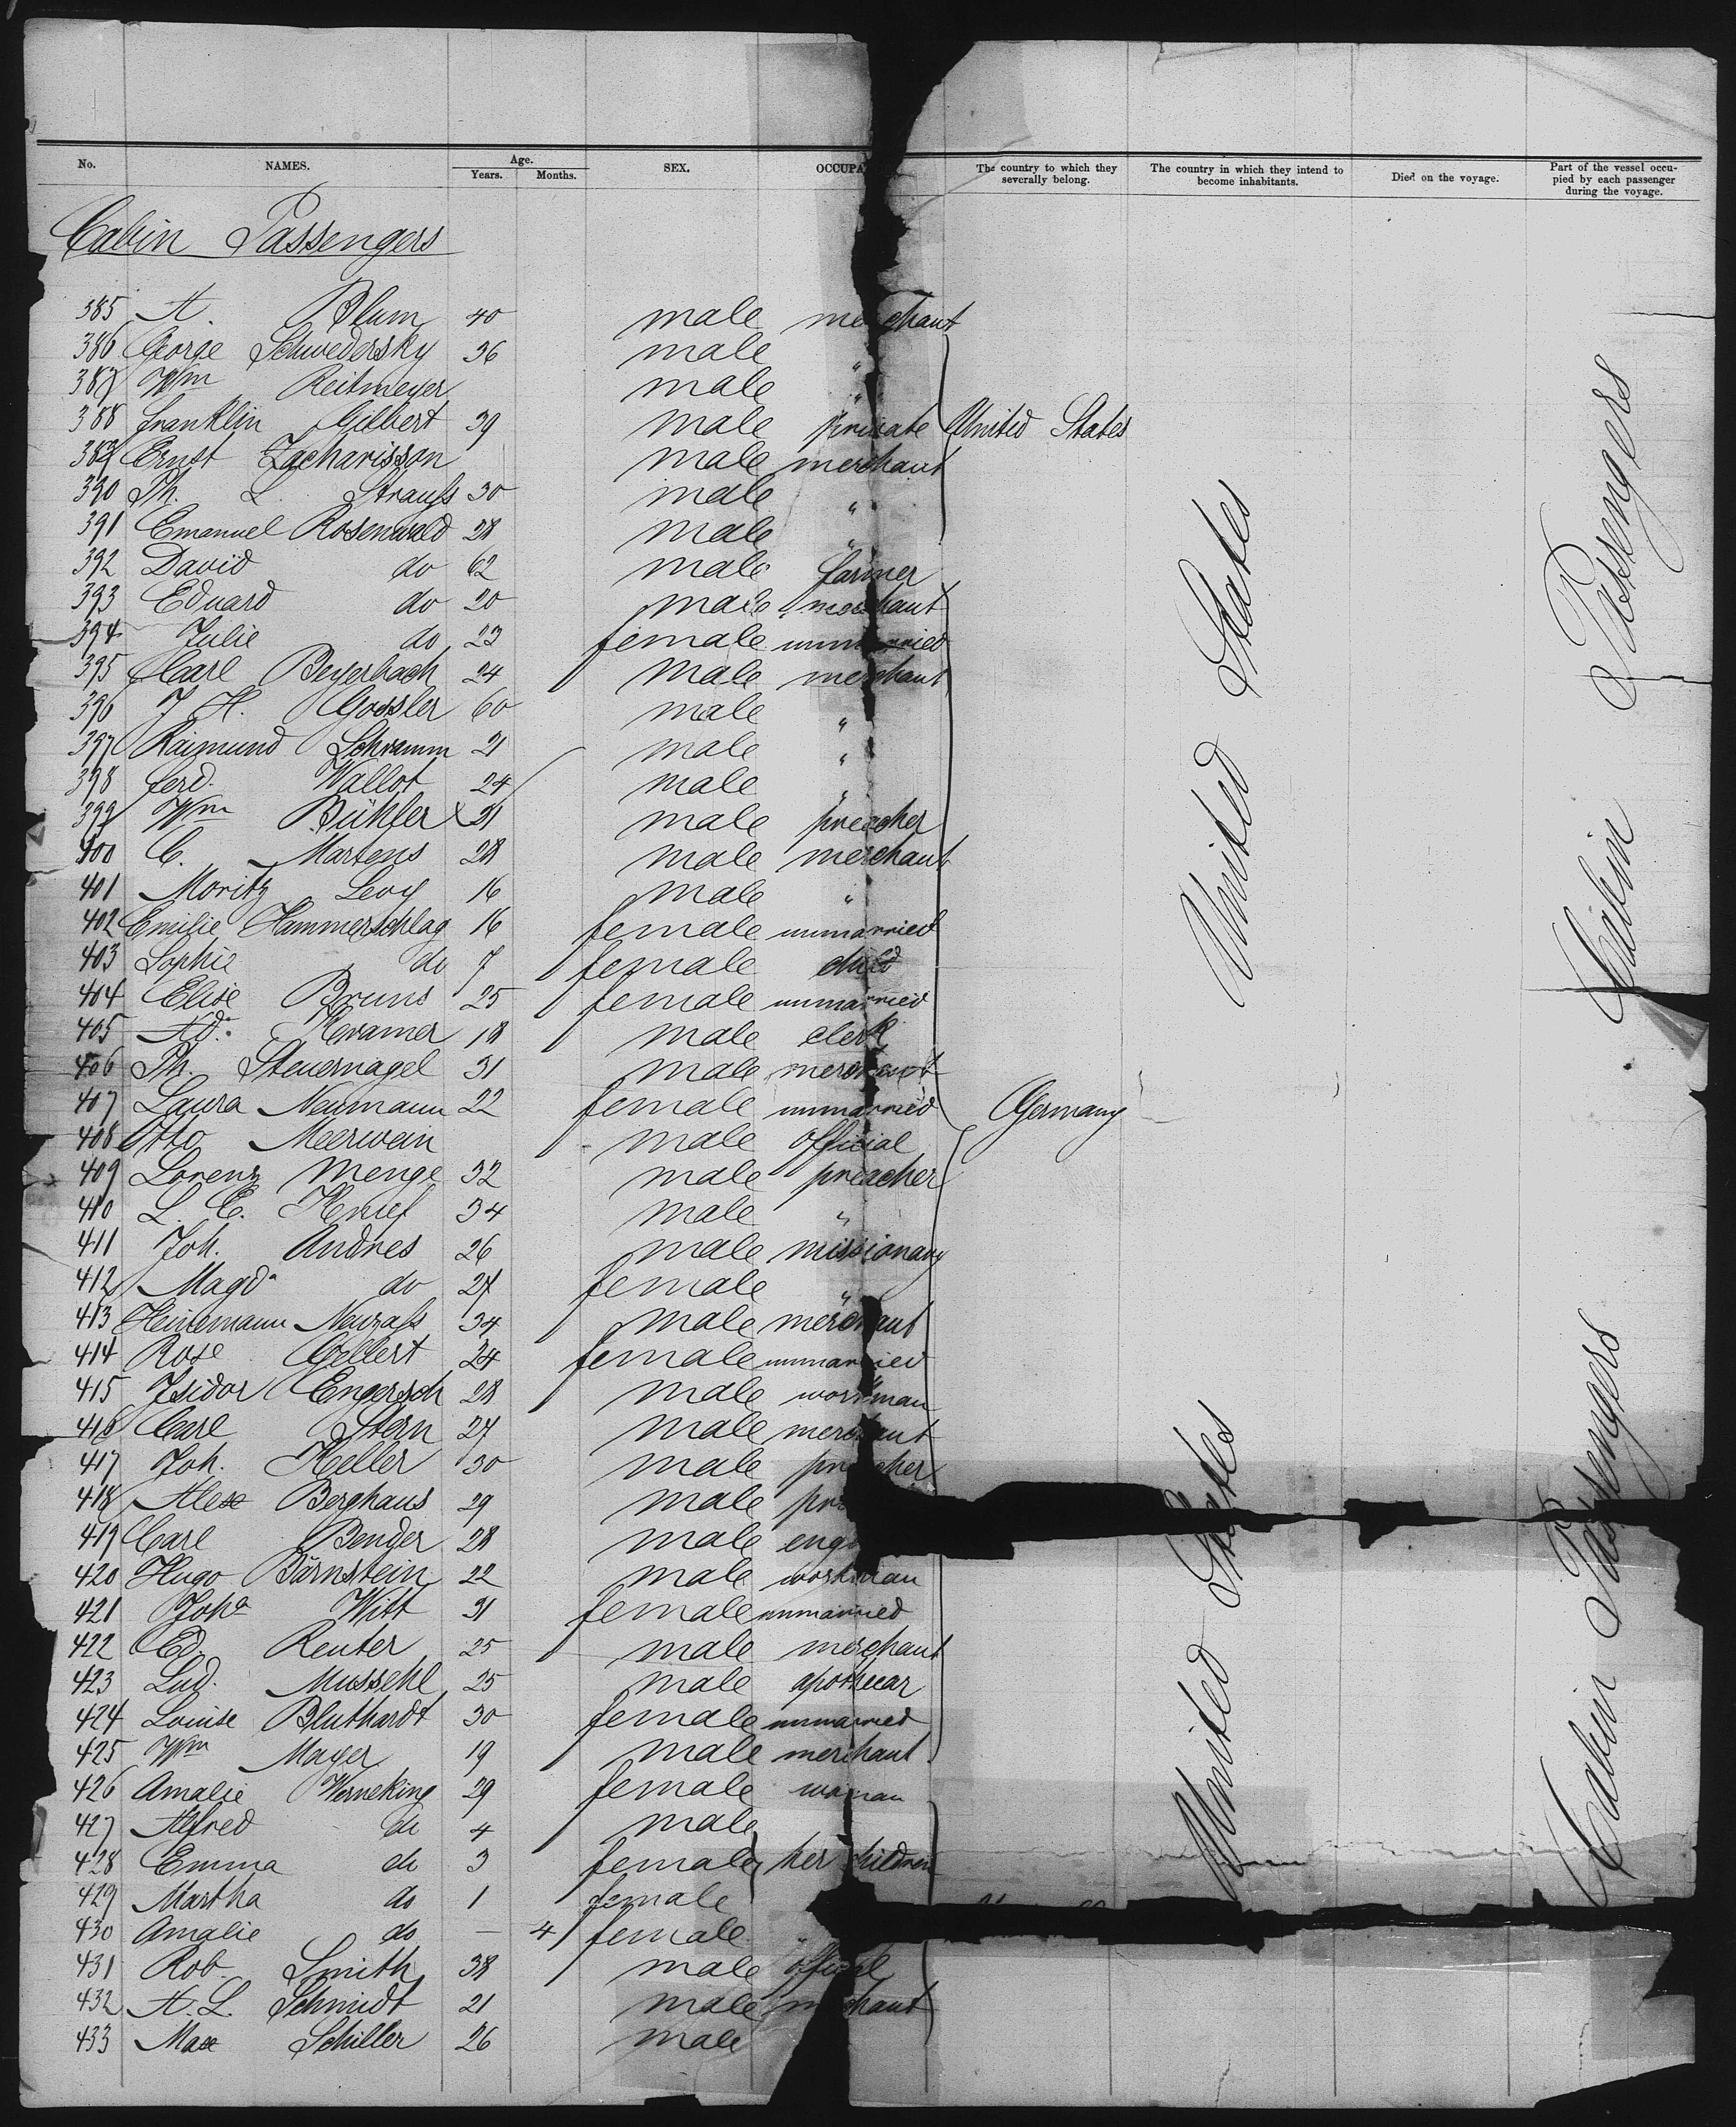 No. NAMES. Age. Years. Months. SEX. OCCUPA The country to which they severally belong. The country in which they intend to become inhabitants. Died on the voyage. Part of the vessel occupied by each passenger during the voyage.
Cabin Passengers
385 A. Blum 40 male merchant
386 George Schwedersky 36 male "
387 Wm Reitmeyer male "
388 Franklin Gilbert 39 male private United States
389 Ernst Zacharisson male merchant
390 Ph. L. Strauss 30 male "
391 Emanuel Rosenwald 28 male "
392 David do 62 male farmer
393 Eduard do 20 male merchant
394 Julie do 23 female unmarried
395 Carl Beyerbach 24 male merchant
396 J. H. Gossler 60 male "
397 Raimund Schramm 21 male "
398 Ferd. Wallot 24 male "
399 Wm Bühler 21 male preacher
400 C. Martens 28 male merchant
401 Moritz Levy 16 male "
402 Emilie Hammerschlag 16 female unmarried
403 Sophie do 7 female child
404 Elise Bruns 25 female unmarried
405 Ad. Kramer 18 male clerk
406 Ph. Steuernagel 31 male merchant
407 Laura Neumann 22 female unmarried Germany
408 Otto Meerwein male official
409 Lorenz Menge 32 male preacher
410 L. E. Knief 34 male "
411 Joh. Andres 26 male missionary
412 Magda do 27 female "
413 Heinemann 34 male merchant
414 Rose Gellert 24 female unmarried
415 Isidor 28 male workman
416 Carl Stern 27 male merchant
417 Joh. Keller 30 male preacher
418 Alex Berghaus 29 male
419 Carl Bender 28 male
420 Hugo Bärnstein 22 male workman
421 Joha Witt 31 female unmarried
422 Ed. Reuter 25 male merchant
423 Lud. Mussehl 25 male apothecar
424 Louise Bluthardt 30 female unmarried
425 Wm Mayer 19 male merchant
426 Amalie Werneking 29 female woman
427 Alfred do 4 male
428 Emma do 3 female her children
429 Martha do 1 female
430 Amalie do — 4 female
431 Rob. Smith 38 male official
432 A. L. Schmidt 21 male merchant
433 Max Schiller 26 male
United States
United States
Cabin Passengers
Cabin Passengers